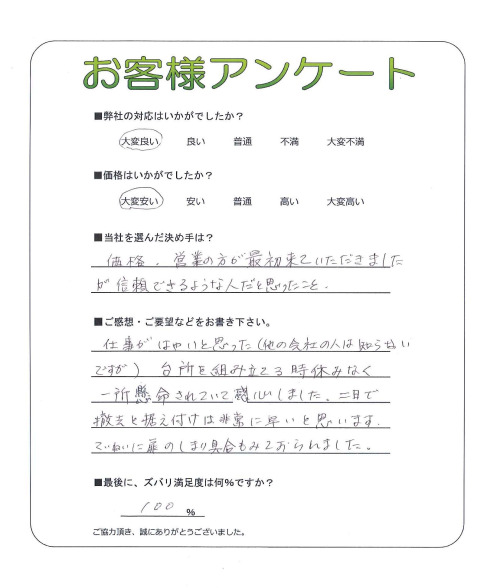 お客様アンケート
■弊社の対応はいかがでしたか?
大変良い 良い 普通 不満 大変不満
■価格はいかがでしたか?
大変安い 安い 普通 高い 大変高い
■当社を選んだ決め手は?
価格、営業の方が最初来ていただきました
が信頼できるような人だと思ったこと、
■ご感想・ご要望などをお書き下さい。
仕事がはやいと思った(他の会社の人は知らない
ですが) 台所を組み立てる時休みなく
一所懸命されていて感心しました。二日で
撤去と据え付けは非常に早いと思います。
ていねいに扉のしまり具合もみておられました。
■最後に、ズバリ満足度は何%ですか?
100 %
ご協力頂き、誠にありがとうございました。